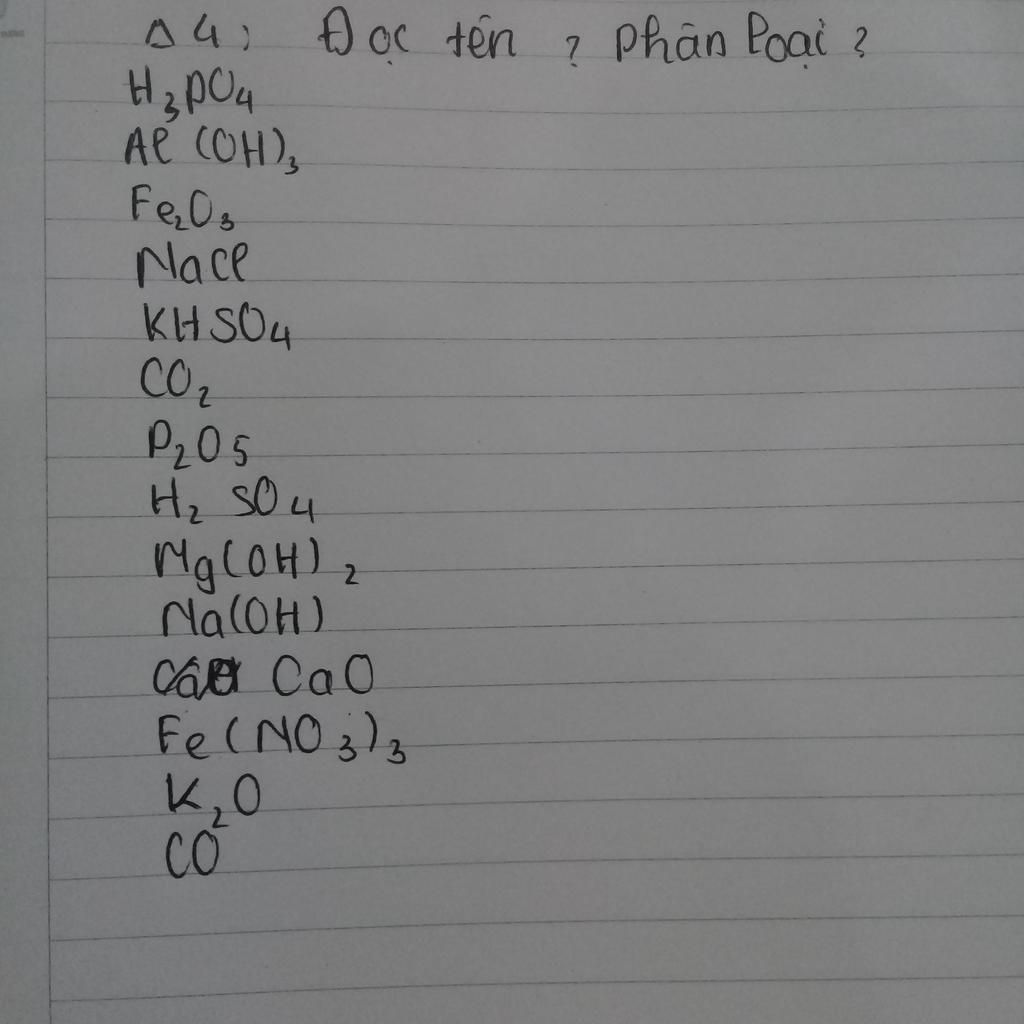 Δ 4; Đọc tên ? phân loại ?
H₃PO₄
Al (OH)₃
Fe₂O₃
NaCl
KHSO₄
CO₂
P₂O₅
H₂ SO₄
Mg(OH)₂
Na(OH)
CaO
Fe(NO₃)₃
K₂O
CO